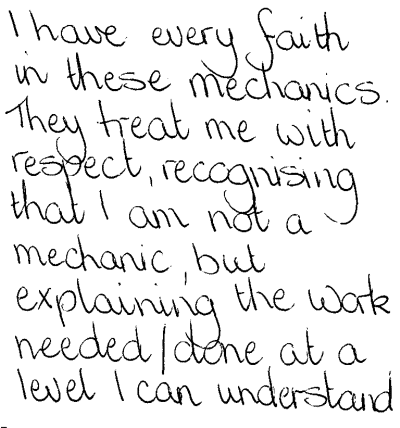 I have every faith
in these mechanics.
They treat me with
respect, recognising
that I am not a
mechanic, but
explaining the work
needed/done at a
level I can understand